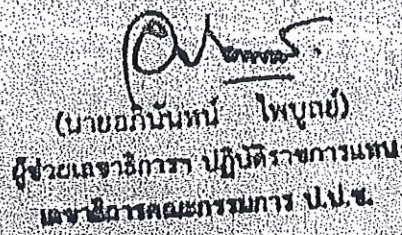 (นายอภินันทน์ ไพบูลย์)
ผู้ช่วยเลขาธิการฯ ปฏิบัติราชการแทน
เลขาธิการคณะกรรมการ ป.ป.ช.